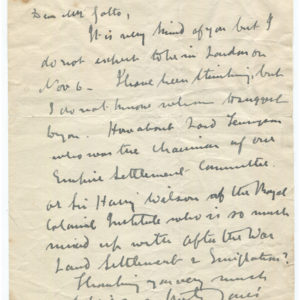 Dear Mr Gatto,
It is very kind of you but I
do not expect to be in London on
Nov 6 – I have been thinking, but
I do not know whom to suggest
to you. How about Lord Tennyson
who was the chairman of our
Empire Settlement Committee.
or Sir Harry Wilson of the Royal
Colonial Institute who is so much
mixed up with After the War
Land Settlement & Emigration?
Thanking you very much